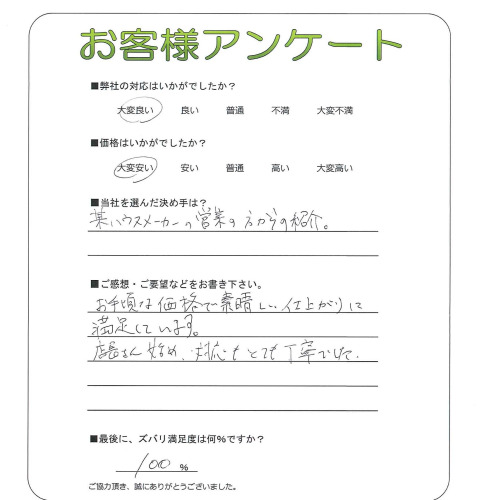 お客様アンケート
■弊社の対応はいかがでしたか？
大変良い 良い 普通 不満 大変不満
■価格はいかがでしたか？
大変安い 安い 普通 高い 大変高い
■当社を選んだ決め手は？
某ハウスメーカーの営業の方からの紹介。
■ご感想・ご要望などをお書き下さい。
お手頃な価格で素晴しい仕上がりに
満足しています。
店長さん始め、対応もとても丁寧でした。
■最後に、ズバリ満足度は何％ですか？
100 ％
ご協力頂き、誠にありがとうございました。